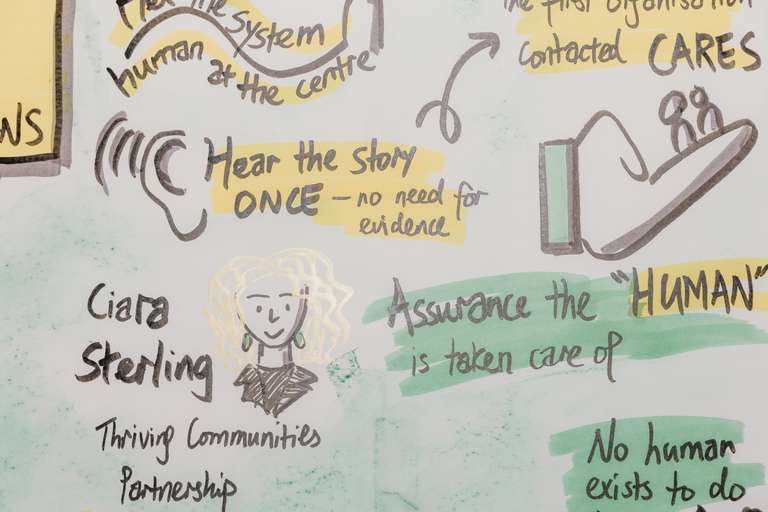 the system
human at the centre
the first organisation
contacted CARES
NS
Hear the story
ONCE – no need for
evidence
Ciara
Sterling
Thriving Communities
Partnership
Assurance the "HUMAN"
is taken care of
No human
exists to do